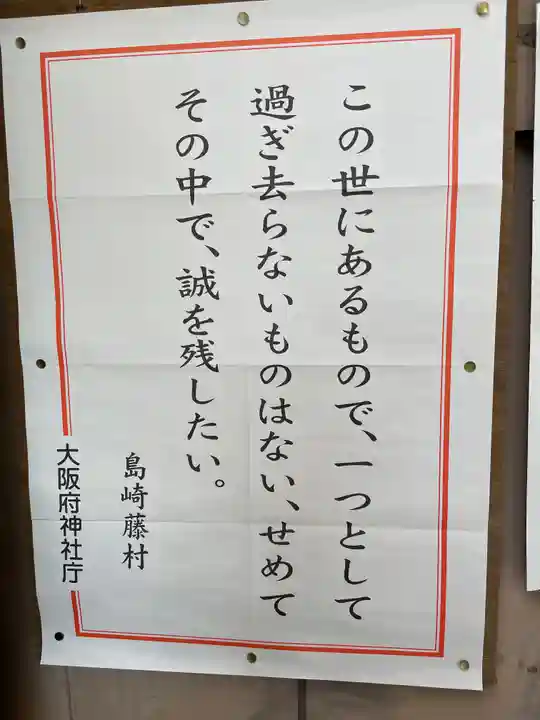 この世にあるもので、一つとして
過ぎ去らないものはない、せめて
その中で、誠を残したい。
島崎藤村
大阪府神社庁